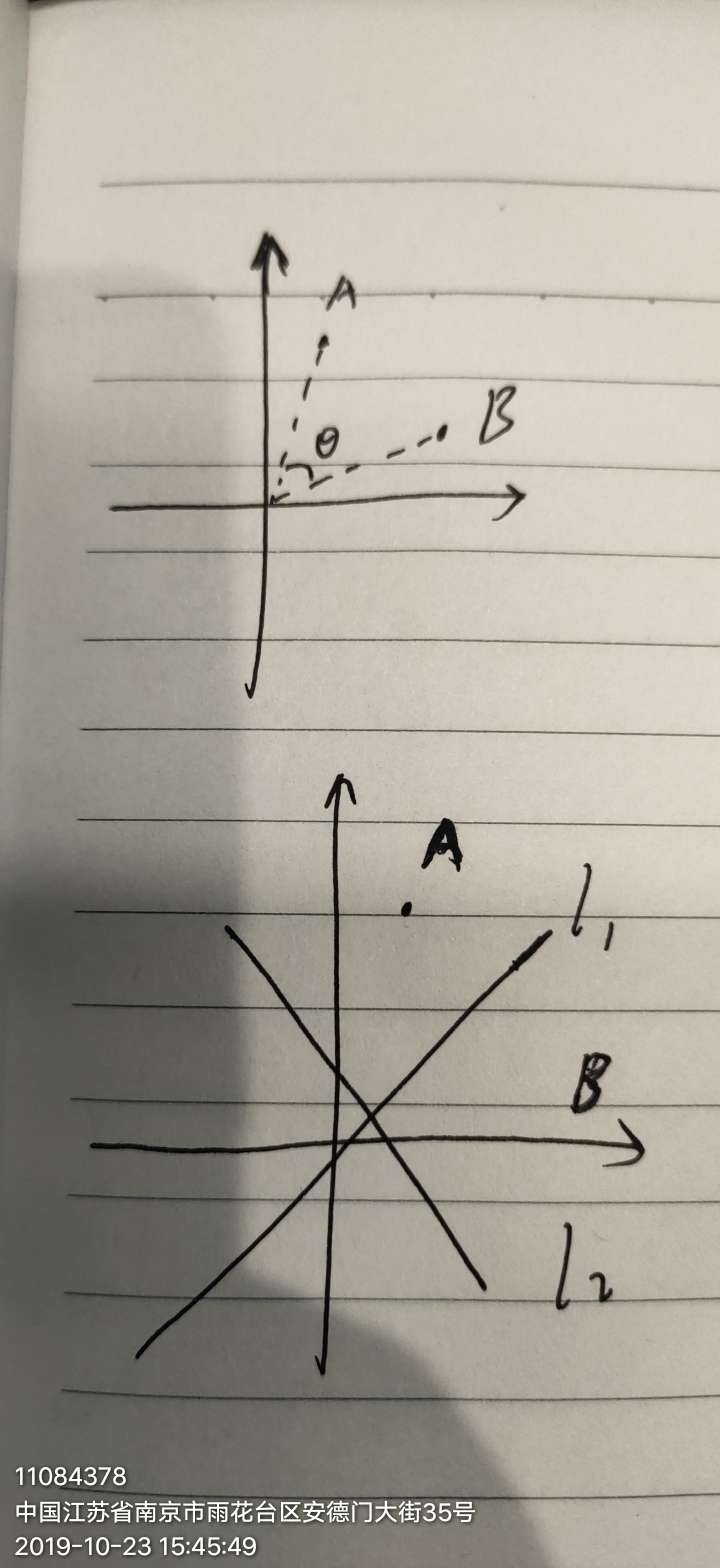 A
θ
B
A
l₁
B
l₂
11084378
中国江苏省南京市雨花台区安德门大街35号
2019-10-23 15:45:49